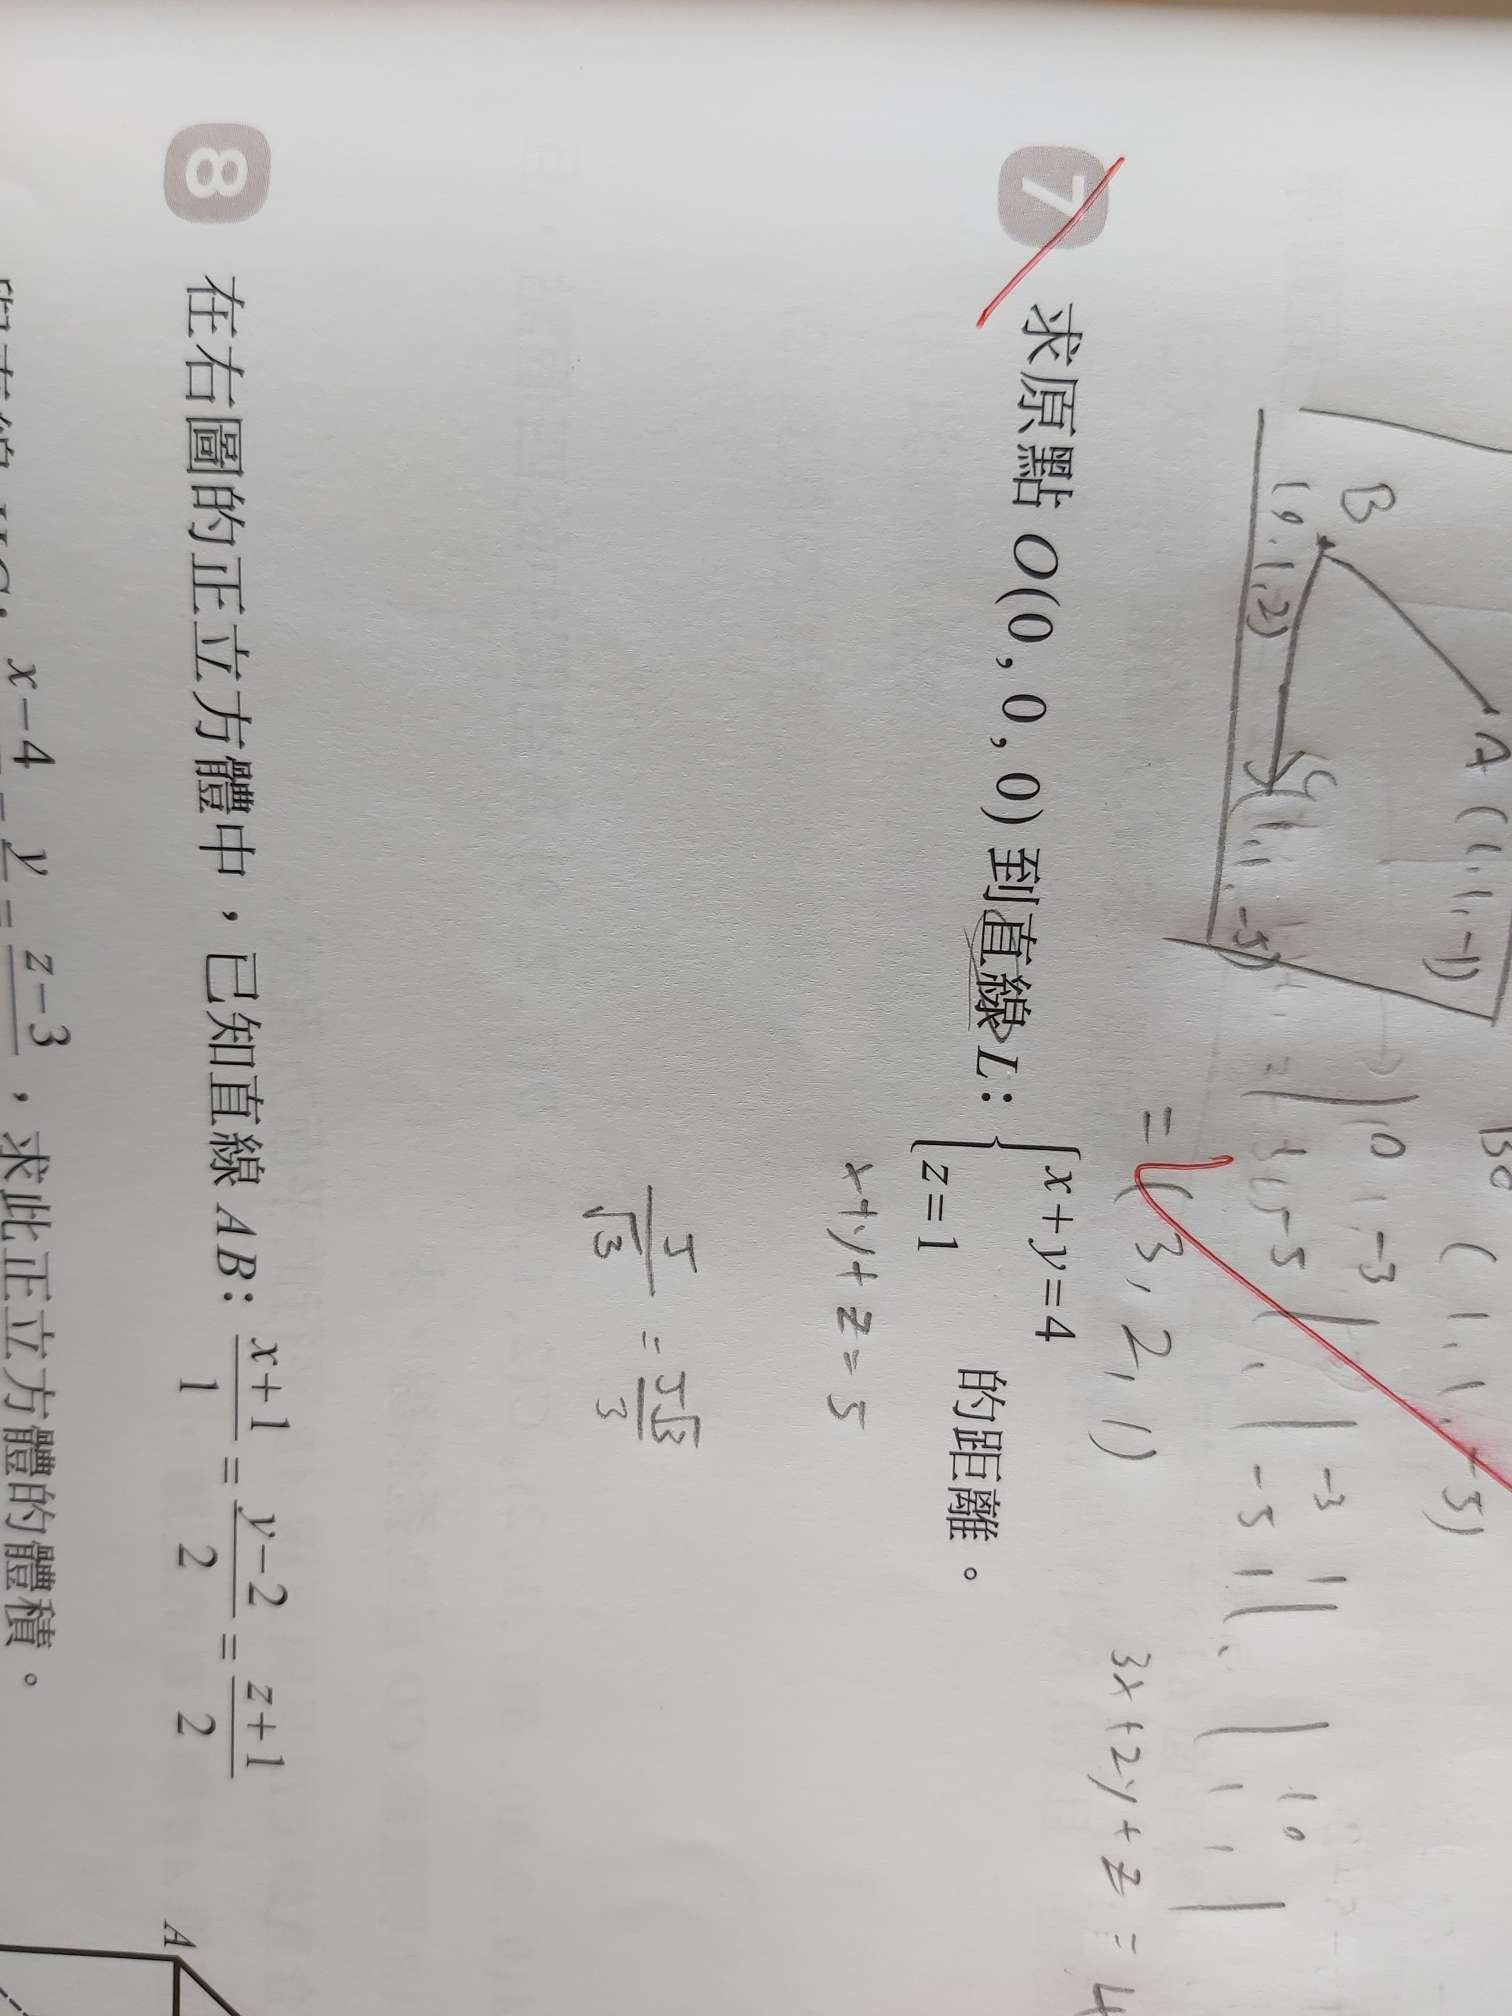 A (1,1,-1)
B
(0,1,2)
C
(1,1,-5)
(1,1,-5)
= (3,2,1)
3x+2y+z=4
7 求原點 O(0,0,0) 到直線 L: { x+y=4
z=1 的距離。
x+y+z=5
5/√3 = 5√3/3
8 在右圖的正立方體中,已知直線 AB: (x+1)/1 = (y-2)/2 = (z+1)/2
x-4 y = z-3 ,求此正立方體的體積。
A